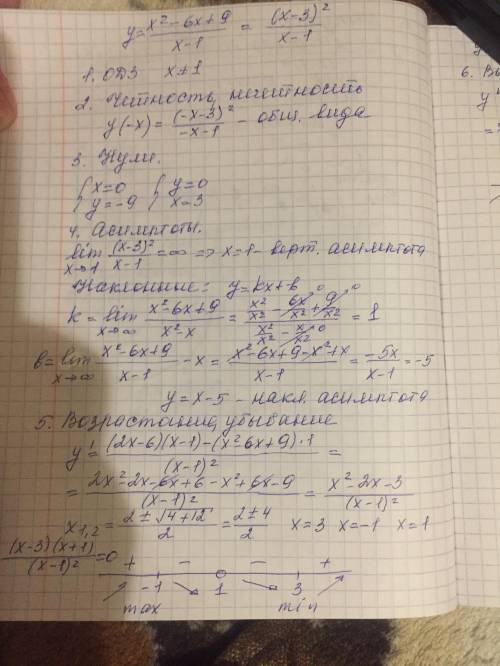 y = (x² - 6x + 9)/(x - 1) = (x - 3)²/(x - 1)
1. ОДЗ x ≠ 1
2. Четность, нечетность
y(-x) = (-x-3)²/(-x-1) - общ. вида
3. Нули.
{ x=0 { y=0
{ y=-9 { x=3
4. Асимптоты.
lim x→1 (x-3)²/(x-1) = ∞ => x=1 - верт. асимптота
Наклонные: y = kx + b
k = lim x→∞ (x² - 6x + 9)/(x² - x) = (x²/x² - 6x/x² + 9/x²)/(x²/x² - x/x²) = 1
b = lim x→∞ (x² - 6x + 9)/(x-1) - x = (x² - 6x + 9 - x² + x)/(x-1) = -5x/(x-1) = -5
y = x - 5 - накл. асимптота
5. Возрастание, убывание
y' = ((2x-6)(x-1) - (x² - 6x + 9)·1)/(x-1)² =
= (2x² - 2x - 6x + 6 - x² + 6x - 9)/(x-1)² = (x² - 2x - 3)/(x-1)²
x1,2 = (2 ± √(4+12))/2 = (2 ± 4)/2 x=3 x=-1 x=1
(x-3)(x+1)/(x-1)² = 0
+ - - +
-1 1 3
max min
6. Вы
y
=